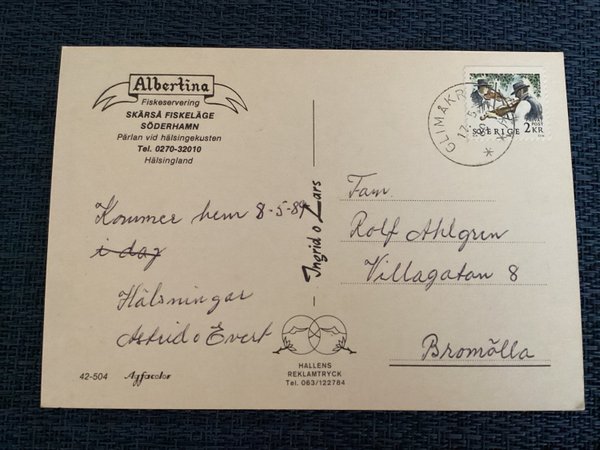 Albertina
Fiskeservering
SKÄRSÅ FISKELÄGE
SÖDERHAMN
Pärlan vid hälsingekusten
Tel. 0270-32010
Hälsingland
Kommer hem 8-5-89
i dag
Hälsningar
Astrid o Evert
42-504 Agfacolor
Ingrid o Lars
HALLENS
REKLAMTRYCK
Tel. 063/122784
GLIMÅKRA
17. 5.
SVERIGE 2 KR
POST
Fam.
Rolf Ahlgren
Villagatan 8
Bromölla